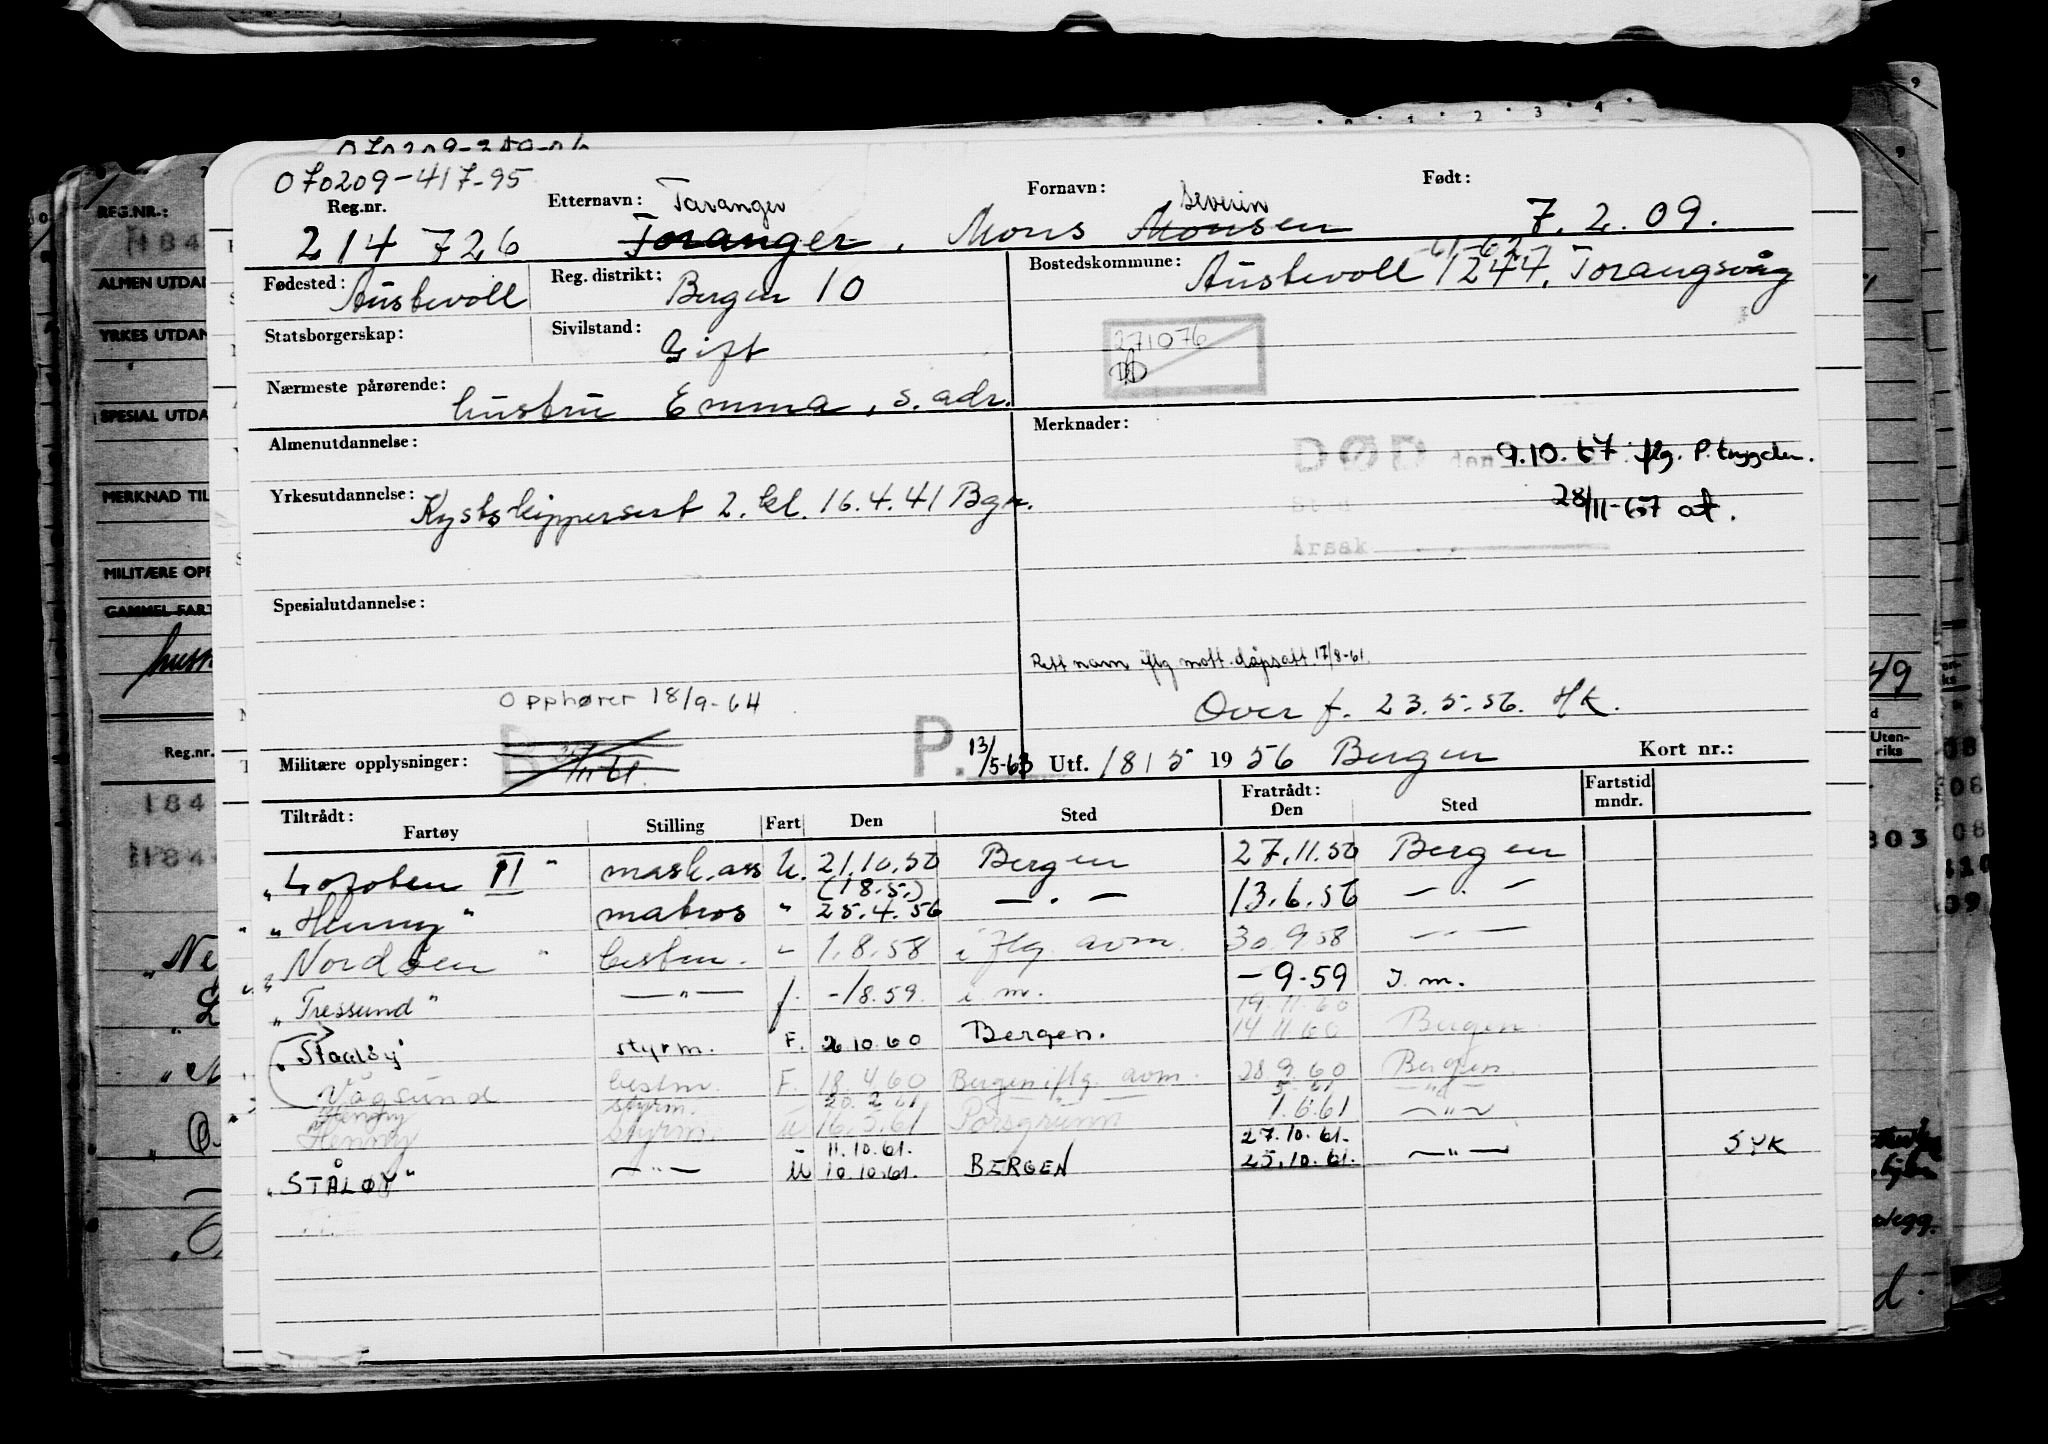 070209-417-95
Reg.nr. Etternavn: Taranger Fornavn: Severin Født:
214 726 Toranger, Mons Monsen 7.2.09.
Fødested: Austevoll Reg. distrikt: Bergen 10 Bostedskommune: Austevoll 1244, Torangsvåg
61-62
Statsborgerskap: Sivilstand: Gift
271076
Nærmeste pårørende: hustru Emma, s. adr.
Almenutdannelse: Merknader:
DØD den 9.10.67 iflg. P. trygden.
Yrkesutdannelse: Kystskippersert 2. kl. 16.4.41 Bgn.
Sted 28/11-67 at.
Årsak
Spesialutdannelse:
Rett navn iflg mott. dåpsatt. 17/8-61
Opphører 18/9-64
Over f. 23.5.56. HK.
Militære opplysninger: B /11-61. P. 13/5-63 Utf. 18/5 1956 Bergen Kort nr.:
Tiltrådt: Fratrådt: Fartstid
Fartøy Stilling Fart Den Sted Den Sted mndr.
"Lofoten II" mask.ass U. 21.10.50 Bergen 27.11.50 Bergen
(18.5.)
"Henny" matros " 25.4.56 — . — 13.6.56 — . —
"Nordøen" bestm. " 1.8.58 iflg. avm. 30.9.58 — " —
"Tressund" — " — f. -/8.59. i m. - 9-59 I. m.
19.11.60
"Staaløy" styrm. F. 2.10.60 Bergen. 14.11.60 Bergen.
Vågsund bestm. F. 18.4.60 Bergen iflg. avm. 28.9.60 Bergen.
Henny styrm. 20.2.61 5.61 — " —
Henny styrm. U 16.3.61 Porsgrunn 1.6.61 — " —
11.10.61. 27.10.61.
"STÅLØY" — " — U 10.10.61. BERGEN 25.10.61. — " — SYK
REG.NR.:
ALMEN UTDAN
YRKES UTDAN
SPESIAL UTDA
MERKNAD TIL
MILITÆRE OPP
GAMMEL FART
Reg.nr.
184